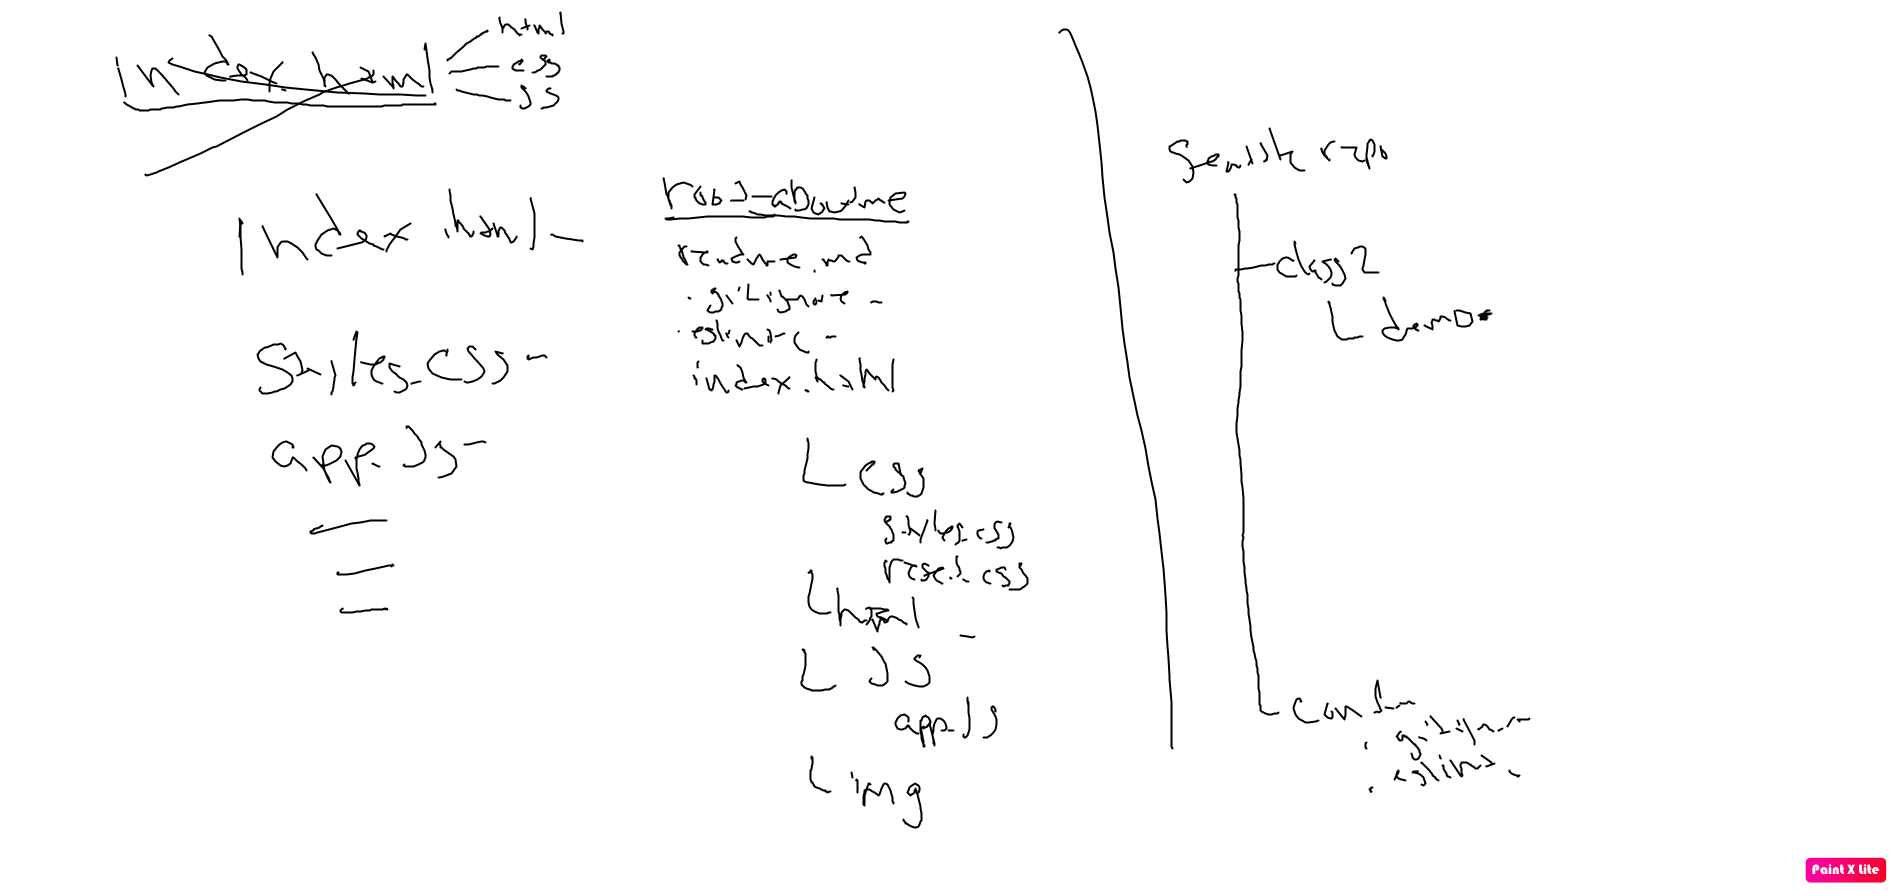 index.html
html
css
JS
Index.html
styles.css
app.js
rob_aboutme
readme.md
.gitignore
.eslintrc
index.html
css
styles.css
reset.css
html
JS
app.js
img
repo
class2
demo
.gitignore
.eslint
Paint X Lite